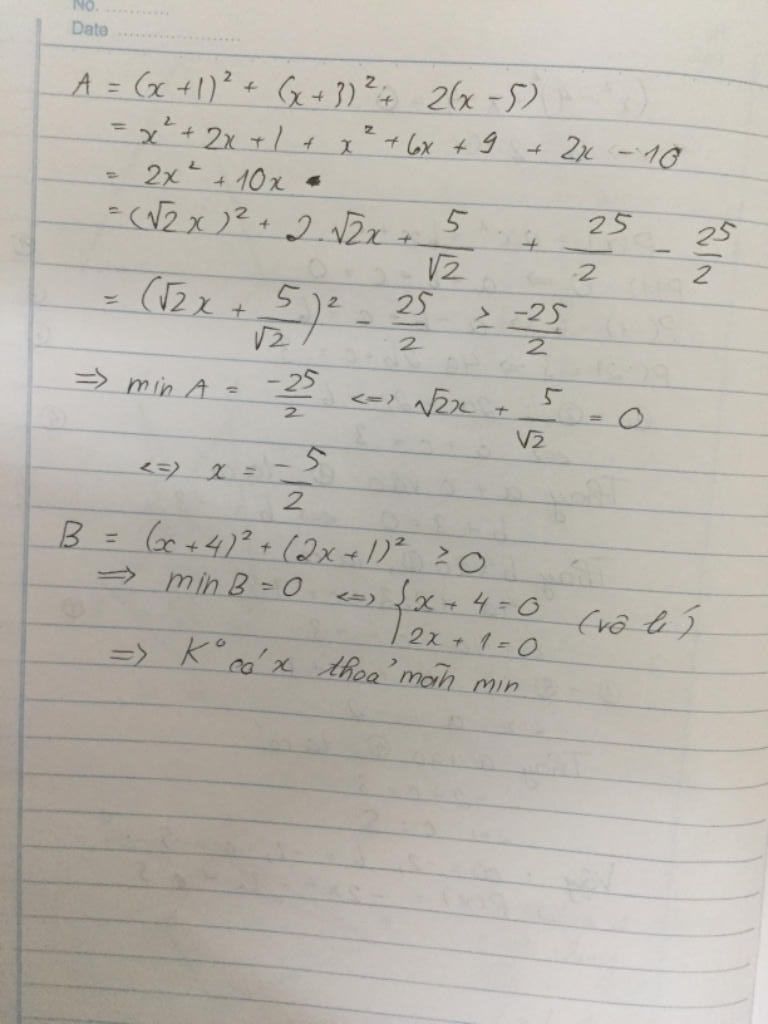 No. ............
Date .......................
A = (x+1)² + (x+3)² + 2(x-5)
= x² + 2x + 1 + x² + 6x + 9 + 2x - 10
= 2x² + 10x
= (√2x)² + 2.√2x + 5/√2 + 25/2 - 25/2
= (√2x + 5/√2)² - 25/2 ≥ -25/2
=> min A = -25/2 <=> √2x + 5/√2 = 0
<=> x = -5/2
B = (x+4)² + (2x+1)² ≥ 0
=> min B = 0 <=> { x + 4 = 0
2x + 1 = 0 (vô lí)
=> K° có x thoả mãn min